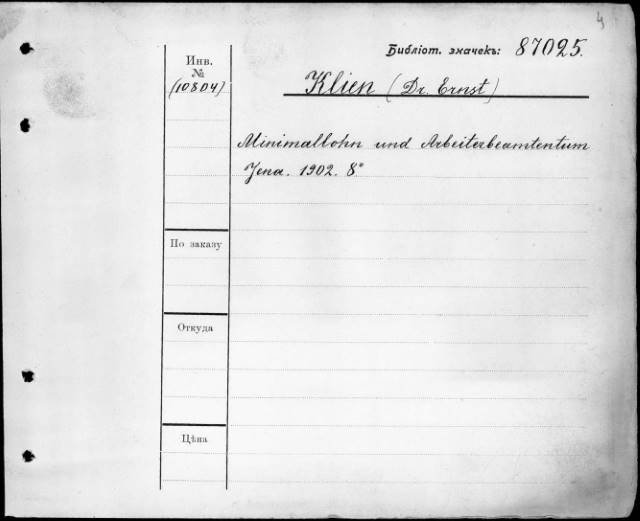 4
Библіот. значекъ: 87025.
Инв.
№
(10804)
Klien (Dr. Ernst)
Minimallohn und Arbeiterbeamtentum
Jena. 1902. 8°
По заказу
Откуда
Цѣна